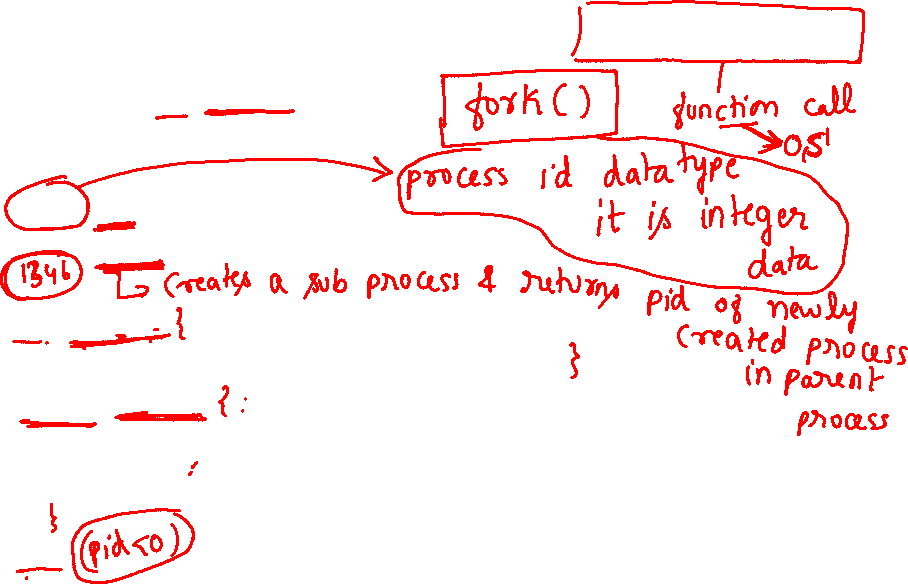 fork()
function call
O,S
process id data type
it is integer
data
1346
Creates a sub process & returns pid of newly
created process
in parent
process
{
}
{:
:
}
(pid<0)